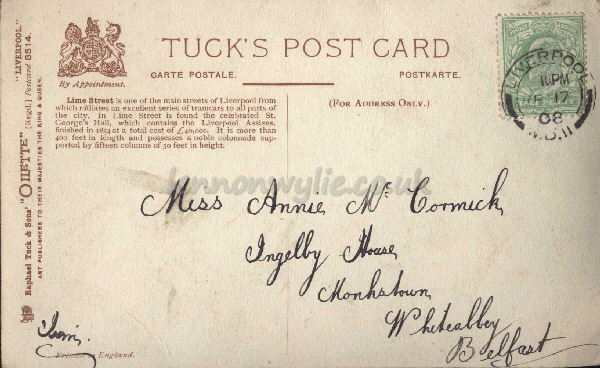 TUCK'S POST CARD
By Appointment.
CARTE POSTALE. POSTKARTE.
Lime Street is one of the main streets of Liverpool from
which radiates an excellent series of tramcars to all parts of
the city. In Lime Street is found the celebrated St.
George's Hall, which contains the Liverpool Assizes,
finished in 1854 at a total cost of £40,000. It is more than
400 feet in length and possesses a noble colonnade sup-
ported by fifteen columns of 50 feet in height.
(FOR ADDRESS ONLY.)
LIVERPOOL
11 PM
17
08
lennonwylie.co.uk
Miss Annie Mc Cormick
Ingelby House
Monkstown
Whiteabbey
Belfast
Printed in England.
Raphael Tuck & Sons' "OILETTE" [Regd.] Postcard 8514.
"LIVERPOOL."
ART PUBLISHERS TO THEIR MAJESTIES THE KING & QUEEN.